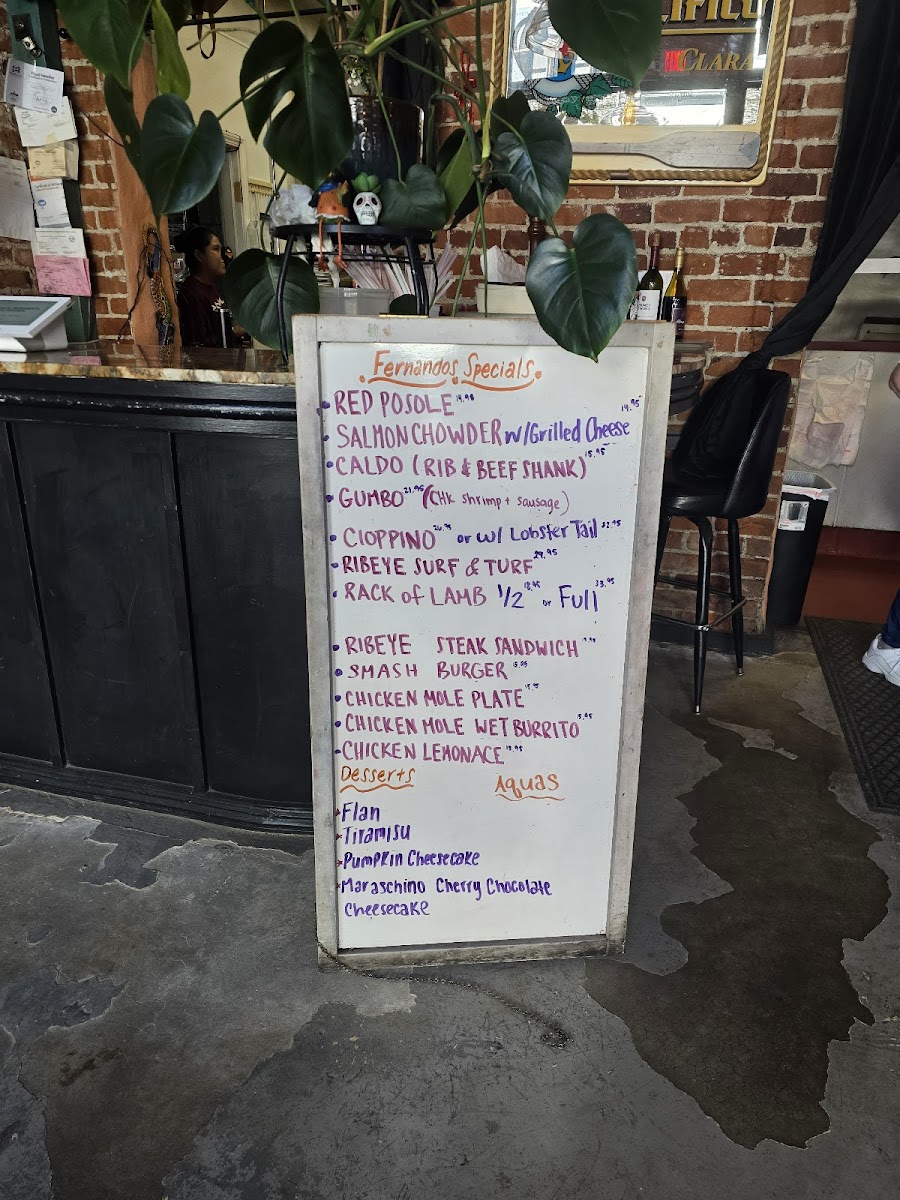 CIFICO
CLARA
Fernandos Specials.
RED POSOLE
SALMON CHOWDER w/Grilled Cheese
CALDO (RIB & BEEF SHANK) 15.95
GUMBO 21.95 (CHK shrimp + sausage)
CIOPPINO or w/ Lobster Tail
RIBEYE SURF & TURF 29.95
RACK of LAMB 1/2 or Full 33.95
RIBEYE STEAK SANDWICH
SMASH BURGER
CHICKEN MOLE PLATE
CHICKEN MOLE WET BURRITO
CHICKEN LEMONACE
Desserts
Aquas
Flan
Tiramisu
Pumpkin Cheesecake
Maraschino Cherry Chocolate
Cheesecake